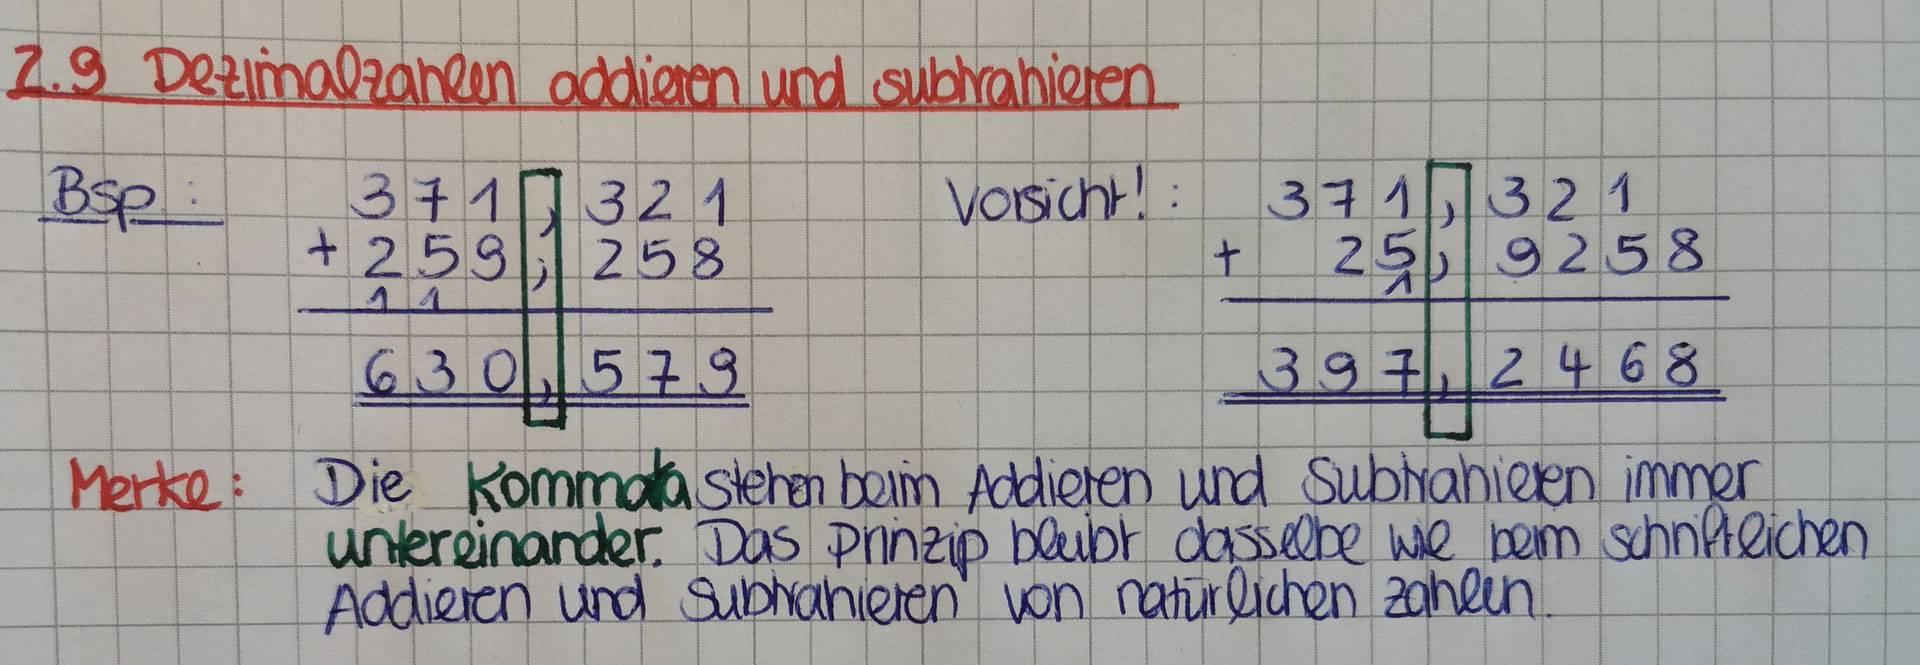 2.9 Dezimalzahlen addieren und subtrahieren
Bsp.: 371,321 Vorsicht!: 371,321
+ 259,258 + 25,9258
1 1 1
630,579 397,2468
Merke: Die Kommata stehen beim Addieren und Subtrahieren immer
untereinander. Das Prinzip bleibt dasselbe wie beim schriftlichen
Addieren und Subtrahieren von natürlichen Zahlen.